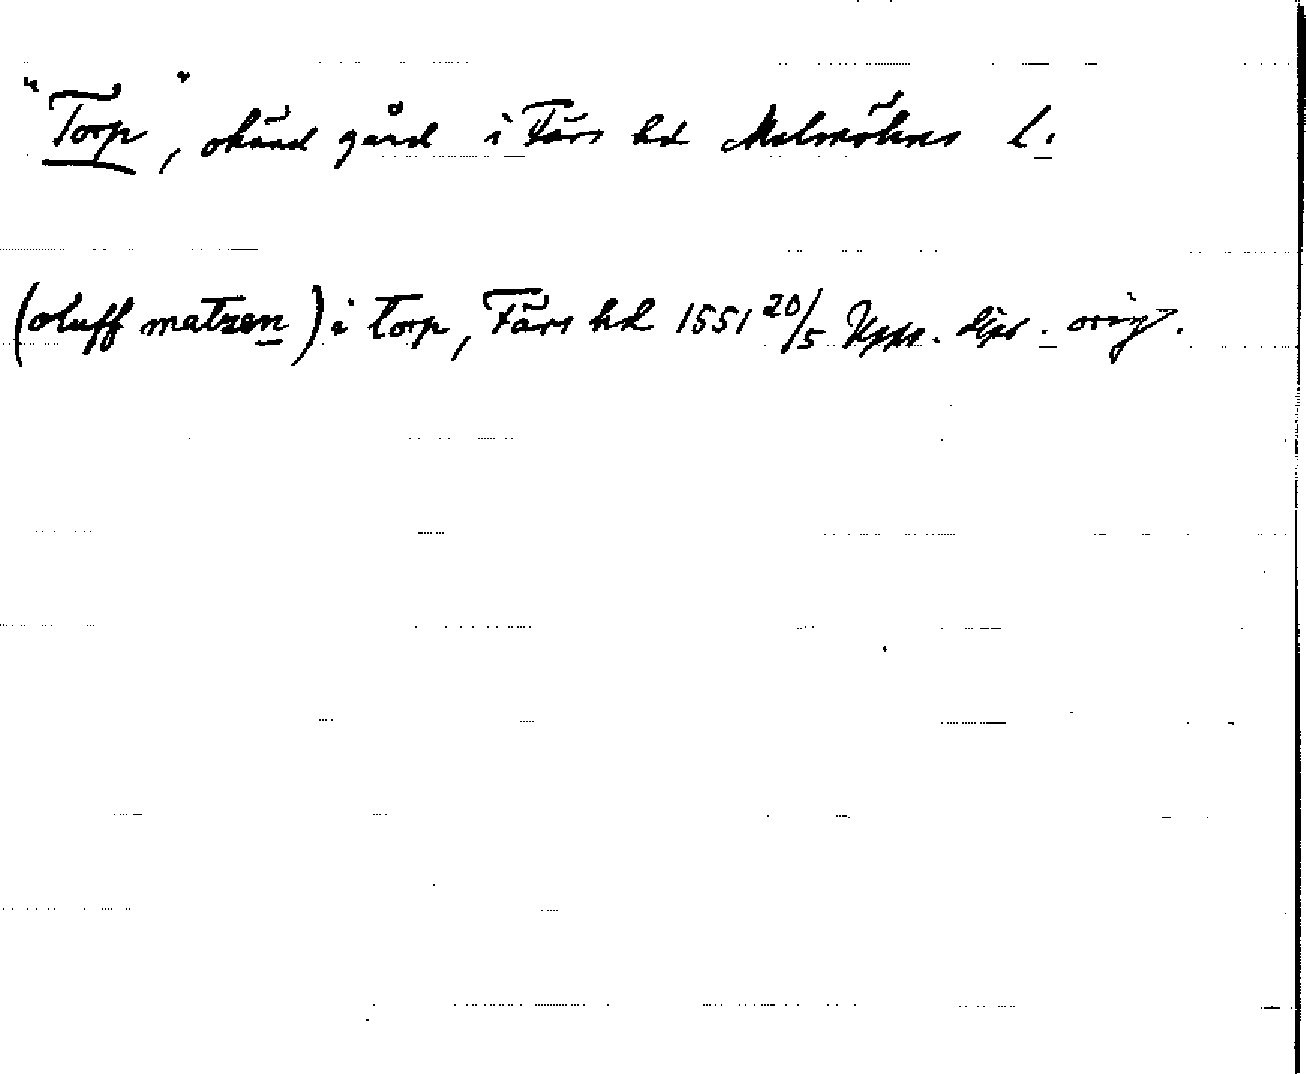 "Torp", okänd gård i Färs hd Malmöhus l.
(oluff matzen) i torp, Färs hd 1551 20/5 Upps. dipl. orig.